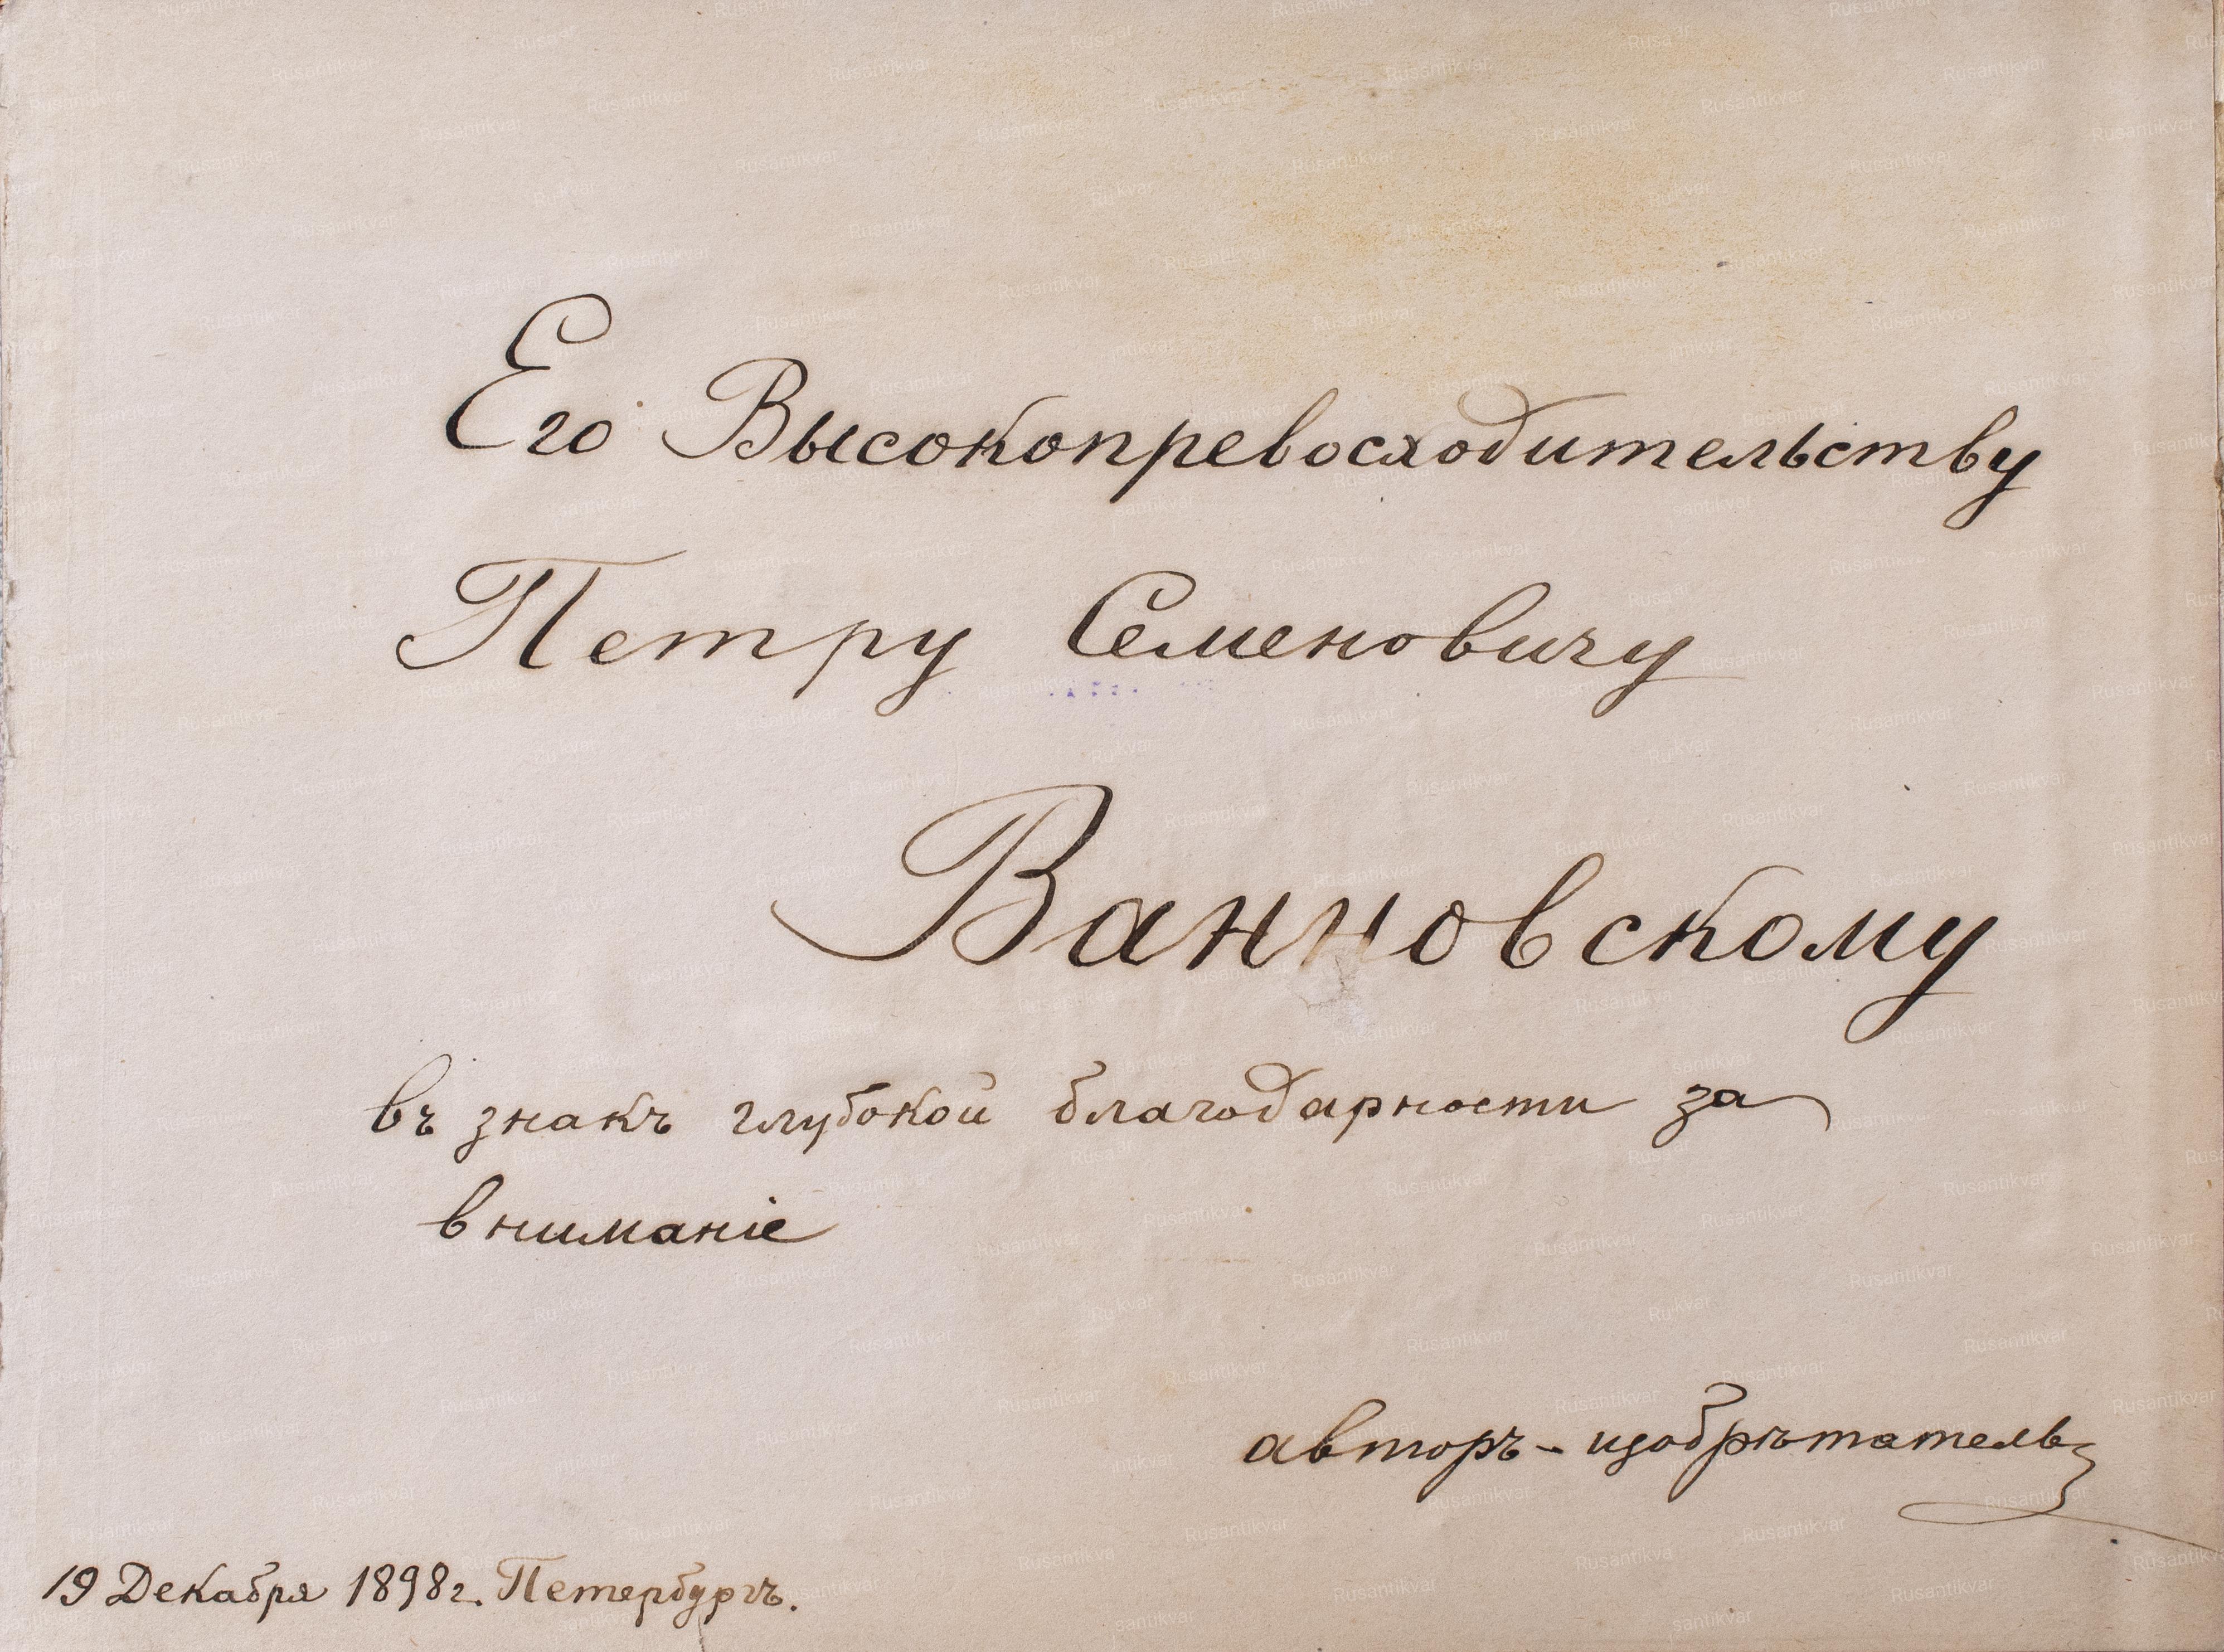 Его Высокопревосходительству
Петру Семеновичу
Ванновскому
въ знакъ глубокой благодарности за
вниманіе
авторъ - изобрѣтатель
19 Декабря 1898 г. Петербургъ.